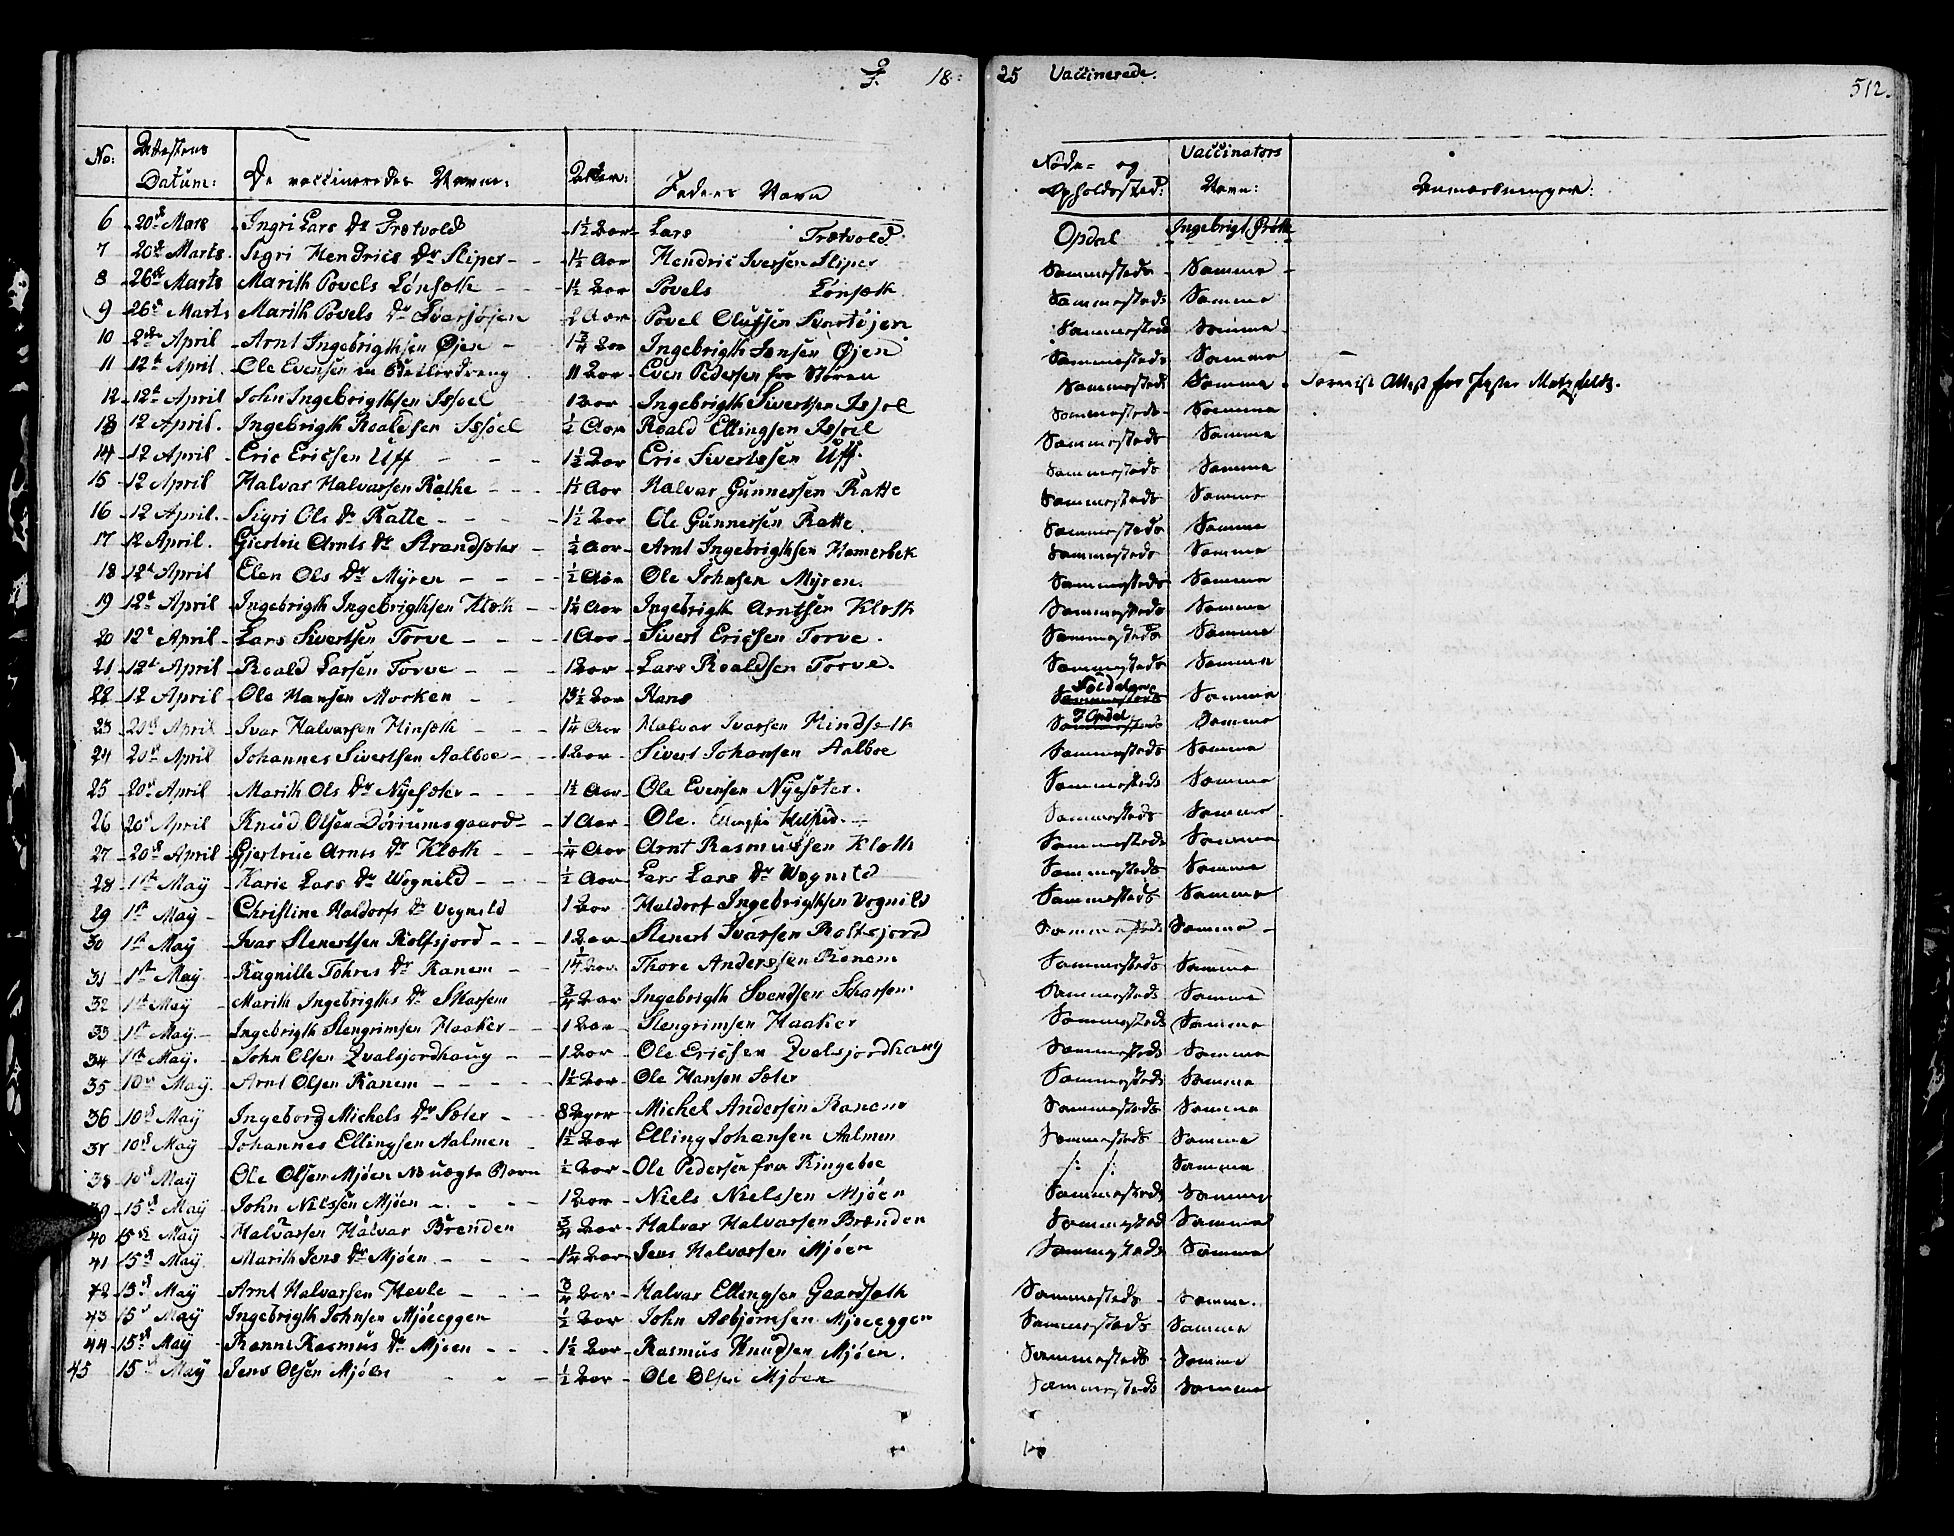 18 25 Vaccinerede. 512.
No: Attestens Datum: De vaccineredes Navne: Alder: Faders Navn Føde- og Opholdssted: Vaccinators Navn: Anmærkninger:
6 20de Mars Ingri Lars Dr Frætvold 1½ Aar Lars Frætvold Opdal Ingebrigt
7 20de Marts Sigri Hendrics Dr Sliper 1½ Aar Hendric Iversen Sliper Sammesteds Samme
8 26de Marts Marith Povels Lønseth 1½ Aar Povels Lønseth Sammesteds Samme
9 26de Marts Marith Povels Dr 2 Aar Povel Olufsen Sammesteds Samme
10 2den April Arnt Ingebrigthsen Øien 1¾ Aar Ingebrigth Jonsen Øjen Sammesteds Samme
11 12te April Ole Evensen en Betlerdreng 11 Aar Even Pedersen fra Støren Sammesteds Samme Attest for
12 12te April John Ingebrigthsen Issoel 1 Aar Ingebrigth Sivertsen Issoel Sammesteds Samme
13 12 April Ingebrigth Roaldsen Issoel ½ Aar Roald Ellingsen Issoel Sammesteds Samme
14 12 April Eric Ericsen Uff 1½ Aar Eric Sivertsen Uff. Sammesteds Samme
15 12 April Halvar Halvarsen Rathe 1½ Aar Halvar Gunnersen Ratte Sammesteds Samme
16 12 April Sigri Ols Dr Ratte 1½ Aar Ole Gunnersen Ratte Sammesteds Samme
17 12 April Giertrue Arnts Dr Strandsæter ½ Aar Arnt Ingebrigthsen Hamerbek Sammesteds Samme
18 12te April Elen Ols Dr Myren ½ Aar Ole Johnsen Myren. Sammesteds Samme
19 12te April Ingebrigth Ingebrigthsen Kleth 1½ Aar Ingebrigth Arntsen Kleth Sammesteds Samme
20 12te April Lars Sivertsen Torve 1 Aar Sivert Ericsen Torve. Sammesteds Samme
21 12te April Roald Larsen Torve 1 Aar Lars Roaldsen Torve. Sammesteds Samme
22 12 April Ole Hansen Morken ½ Aar Hans Samme
23 20de April Ivar Halvarsen Hinseth 1¼ Aar Halvar Ivarsen Hindseth I Opdal Samme
24 20de April Johannes Sivertsen Aalboe 1 Aar Sivert Johansen Aalboe Sammesteds Samme
25 20de April Marith Ols Dr Nyesæter 1½ Aar Ole Evensen Nyesæter. Sammesteds Samme
26 20de April Knud Olsen Dørrumsgaard 1 Aar Ole Sammesteds Samme
27 20de April Gjertrue Arnts Dr Kleth ¼ Aar Arnt Rasmussen Kleth Sammesteds Samme
28 1te May Karie Lars Dr Wognild ½ Aar Lars Lars Dr Wognild Sammesteds Samme
29 1te May Christine Haldorfs Dr Vognild 1 Aar Haldorf Ingebrigthsen Vognild Sammesteds Samme
30 1te May Ivar Stenertsen Rolfsjord 1 Aar Stenert Ivarsen Roltsjord Sammesteds Samme
31 1te May Ragnille Tohres Dr Ranem 1¼ Aar Thore Andersen Ranem Sammesteds Samme
32 1te May Marith Ingebrigths Dr Skarsem ¾ Aar Ingebrigth Svendsen Skarsem Sammesteds Samme
33 1te May Ingebrigth Stengrimsen Haaker 1 Aar Stengrimsen Haaker Sammesteds Samme
34 1te May John Olsen Qvalsjordhaug 1 Aar Ole Ericsen Qvalsjordhaug Sammesteds Samme
35 10de May Arnt Olsen Ranem 1½ Aar Ole Hansen Sæter Sammesteds Samme
36 10de May Ingeborg Michels Dr Sæter 8 Uger Michel Andersen Ranem Sammesteds Samme
37 10de May Johannes Ellingsen Aalmen 1½ Aar Elling Johansen Aalmen Sammesteds Samme
38 10de May Ole Olsen Mjøen uægte Barn ½ Aar Ole Pedersen fra Ringeboe /: /: Samme
39 15de May John Nilssen Mjøen 1 Aar Niels Nielssen Mjøen Sammesteds Samme
40 15de May Halvarsen Halvar Brenden ¾ Aar Halvar Halvarsen Brænden Sammesteds Samme
41 15de May Marith Jens Dr Mjøen 1¼ Aar Jens Halvarsen Mjøen Sammesteds Samme
42 15de May Arnt Halvarsen Hevle ¾ Aar Halvar Ellingsen Gaardseth Sammesteds Samme.
43 15de May Ingebrigth Johnsen Mjøeeggen ½ Aar John Asbjørnsen Mjøeeggen Sammesteds Samme
44 15de May Ranni Rasmus Dr Mjøen 1½ Aar Rasmus Knudsen Mjøen. Sammesteds Samme
45 15de May Jens Olsen Mjøen ½ Aar Ole Olsen Mjøen Sammesteds Samme